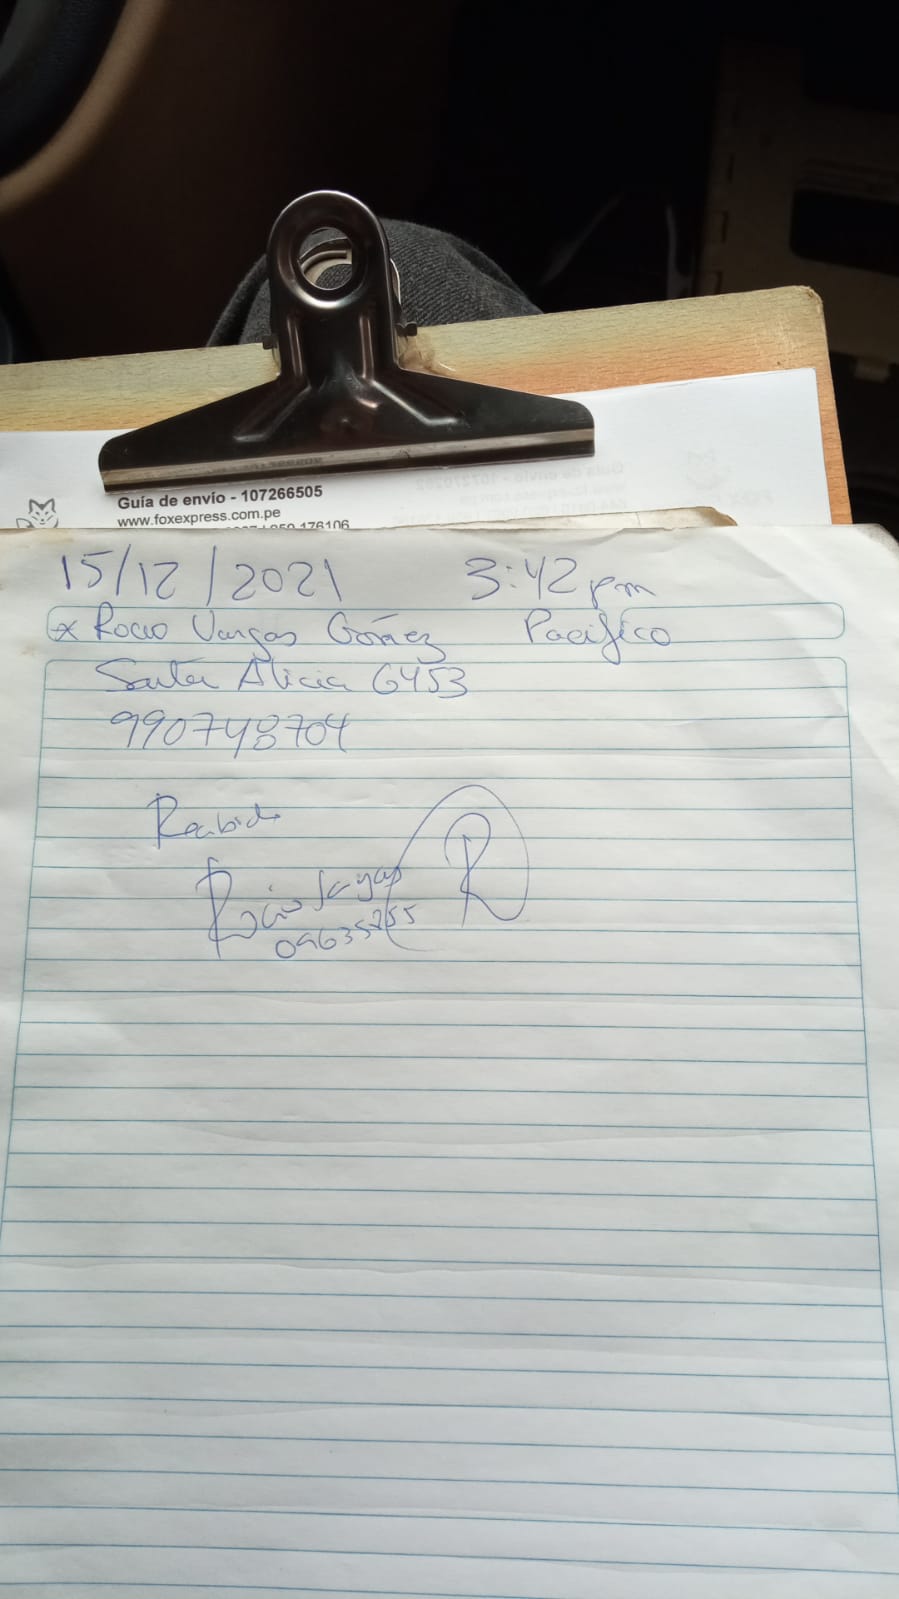 Guía de envío - 107266505
www.foxexpress.com.pe
176106
15/12/2021 3:42 pm
* Rocio Vargas Gómez Pacifico
Santa Alicia 6453
990748704
Recibido
Rocio Vargas R
09635255